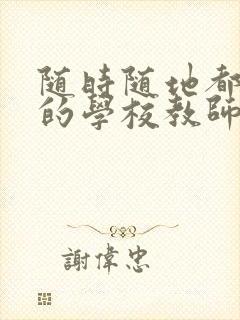 随時随地都
的學校教師
謝偉忠